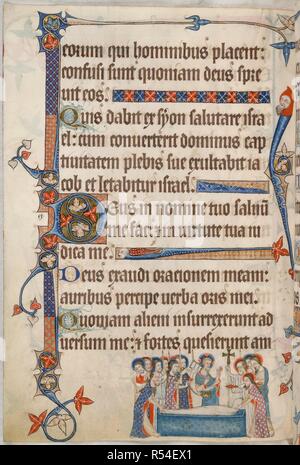 eorum qui hominibus placent:
confusi sunt quoniam deus spre
uit eos.
Quis dabit ex syon salutare isra
el: cum converterit dominus cap
tiuitatem plebis sue exultabit ia
cob et letabitur israel.
Deus in nomine tuo saluū
me fac: et in uirtute tua iu
dica me.
Deus exaudi oracionem meam:
auribus percipe uerba oris mei.
Quoniam alieni insurrexerunt ad
uersum me: et fortes quesierunt am
alamy
R54EX1
www.alamy.com